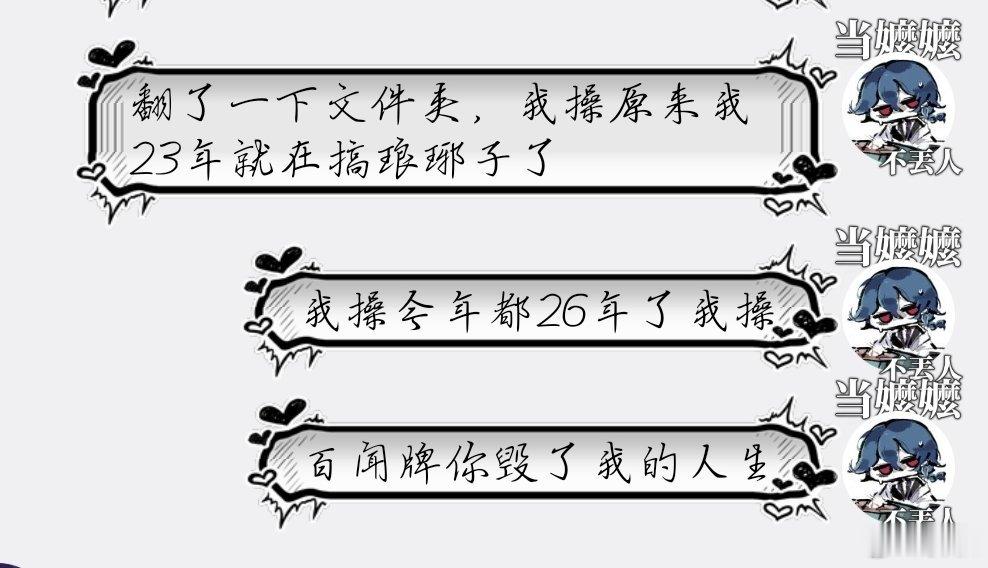 当嬷嬷
翻了一下文件夹，我操原来我
23年就在搞琅琊子了
不丢人
当嬷嬷
我操今年都26年了我操
不丢人
当嬷嬷
百闻牌你毁了我的人生
不丢人